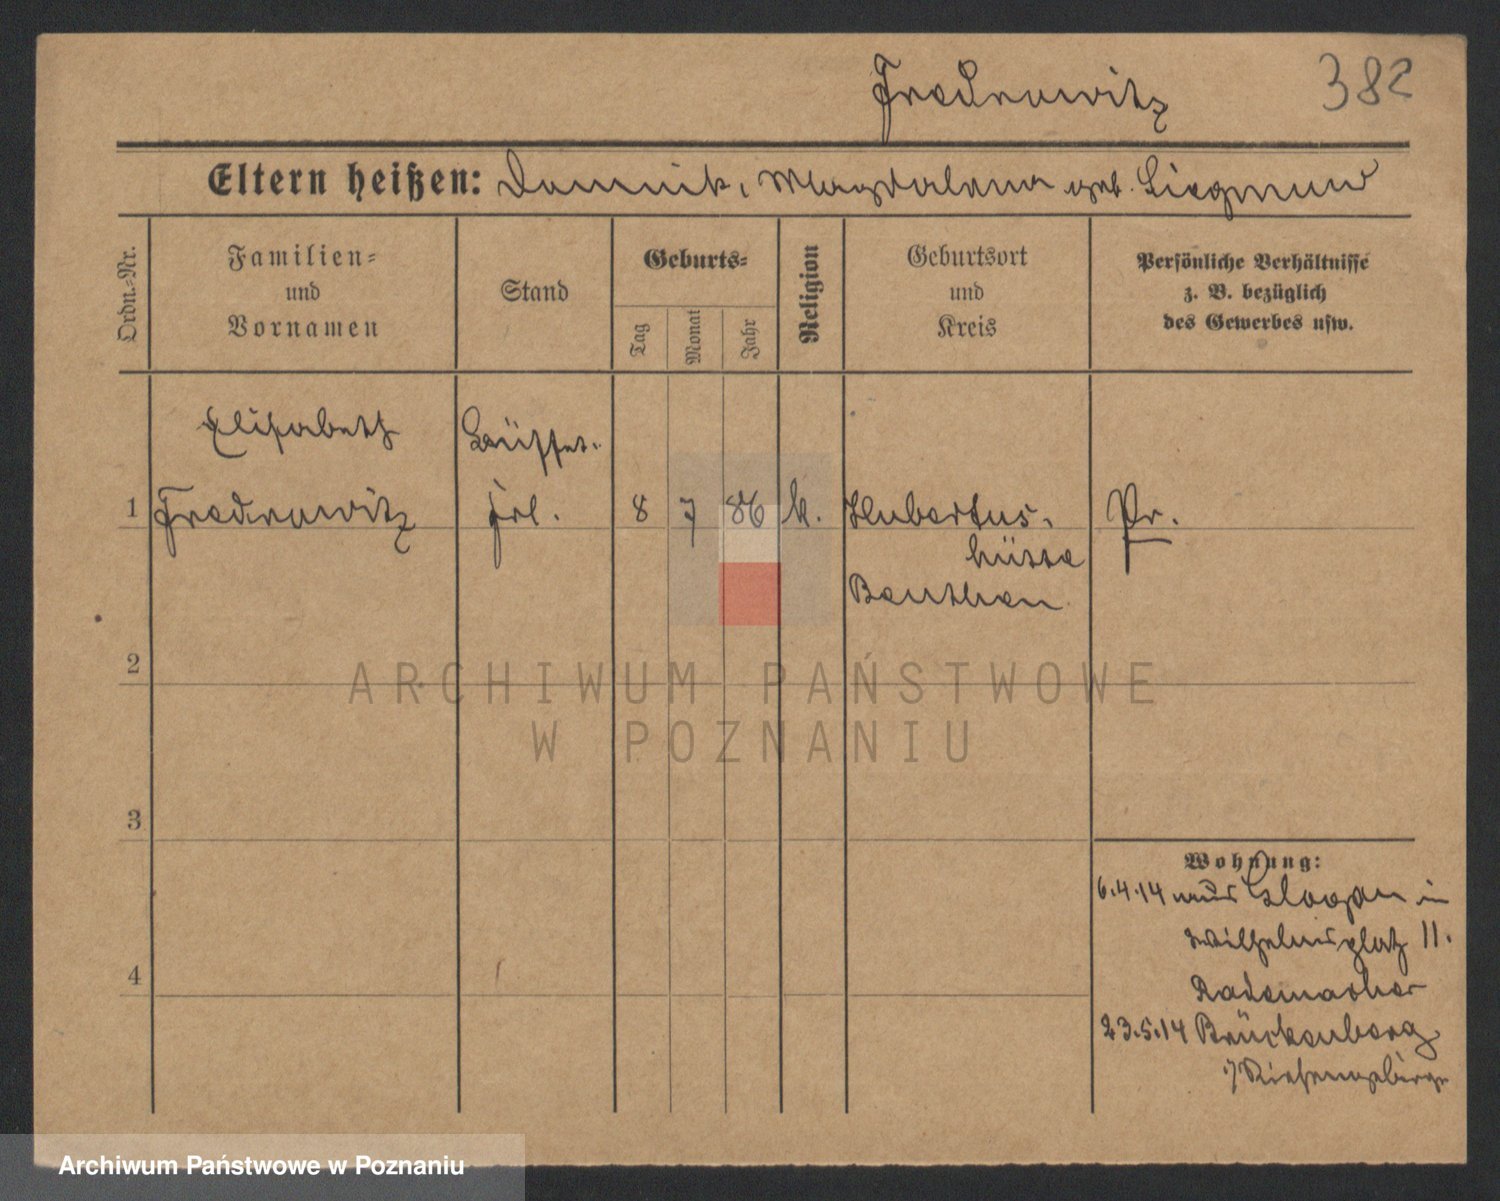 382
Eltern heißen: Dominik, Magdalena geb.
Ordn.-Nr.
Familien- und Vornamen
Stand
Geburts-
Tag
Monat
Jahr
Religion
Geburtsort und Kreis
Persönliche Verhältnisse z. B. bezüglich des Gewerbes usw.
Elisabeth
Büffet-
1 frl. 8 7 86 k. Hubertus- Pr.
hütte
Beuthen
2
3
4
Wohnung:
6.4.14 aus Glogau in
Wilhelmsplatz 11.
Rademacher
23.5.14 Brückenberg
i/Riesengebirge
ARCHIWUM PAŃSTWOWE
W POZNANIU
Archiwum Państwowe w Poznaniu